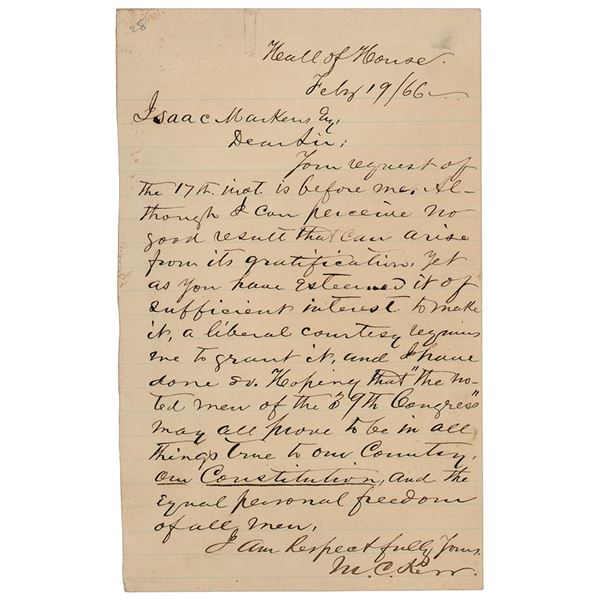 28
Hall of House.
Feby 19/66
Isaac Markens Esq,
Dear Sir;
Your request of
the 17th. inst. is before me. Al-
though I can perceive no
good result that can arise
from its gratification, yet
as you have esteemed it of
sufficient interest to make
it, a liberal courtesy requires
me to grant it, and I have
done so. Hoping that "the no-
ted men of the 39th Congress"
may all prove to be in all
things true to our Country,
our Constitution, and the
equal personal freedom
of all men,
I am Respectfully Yours.
M. C. Kerr.